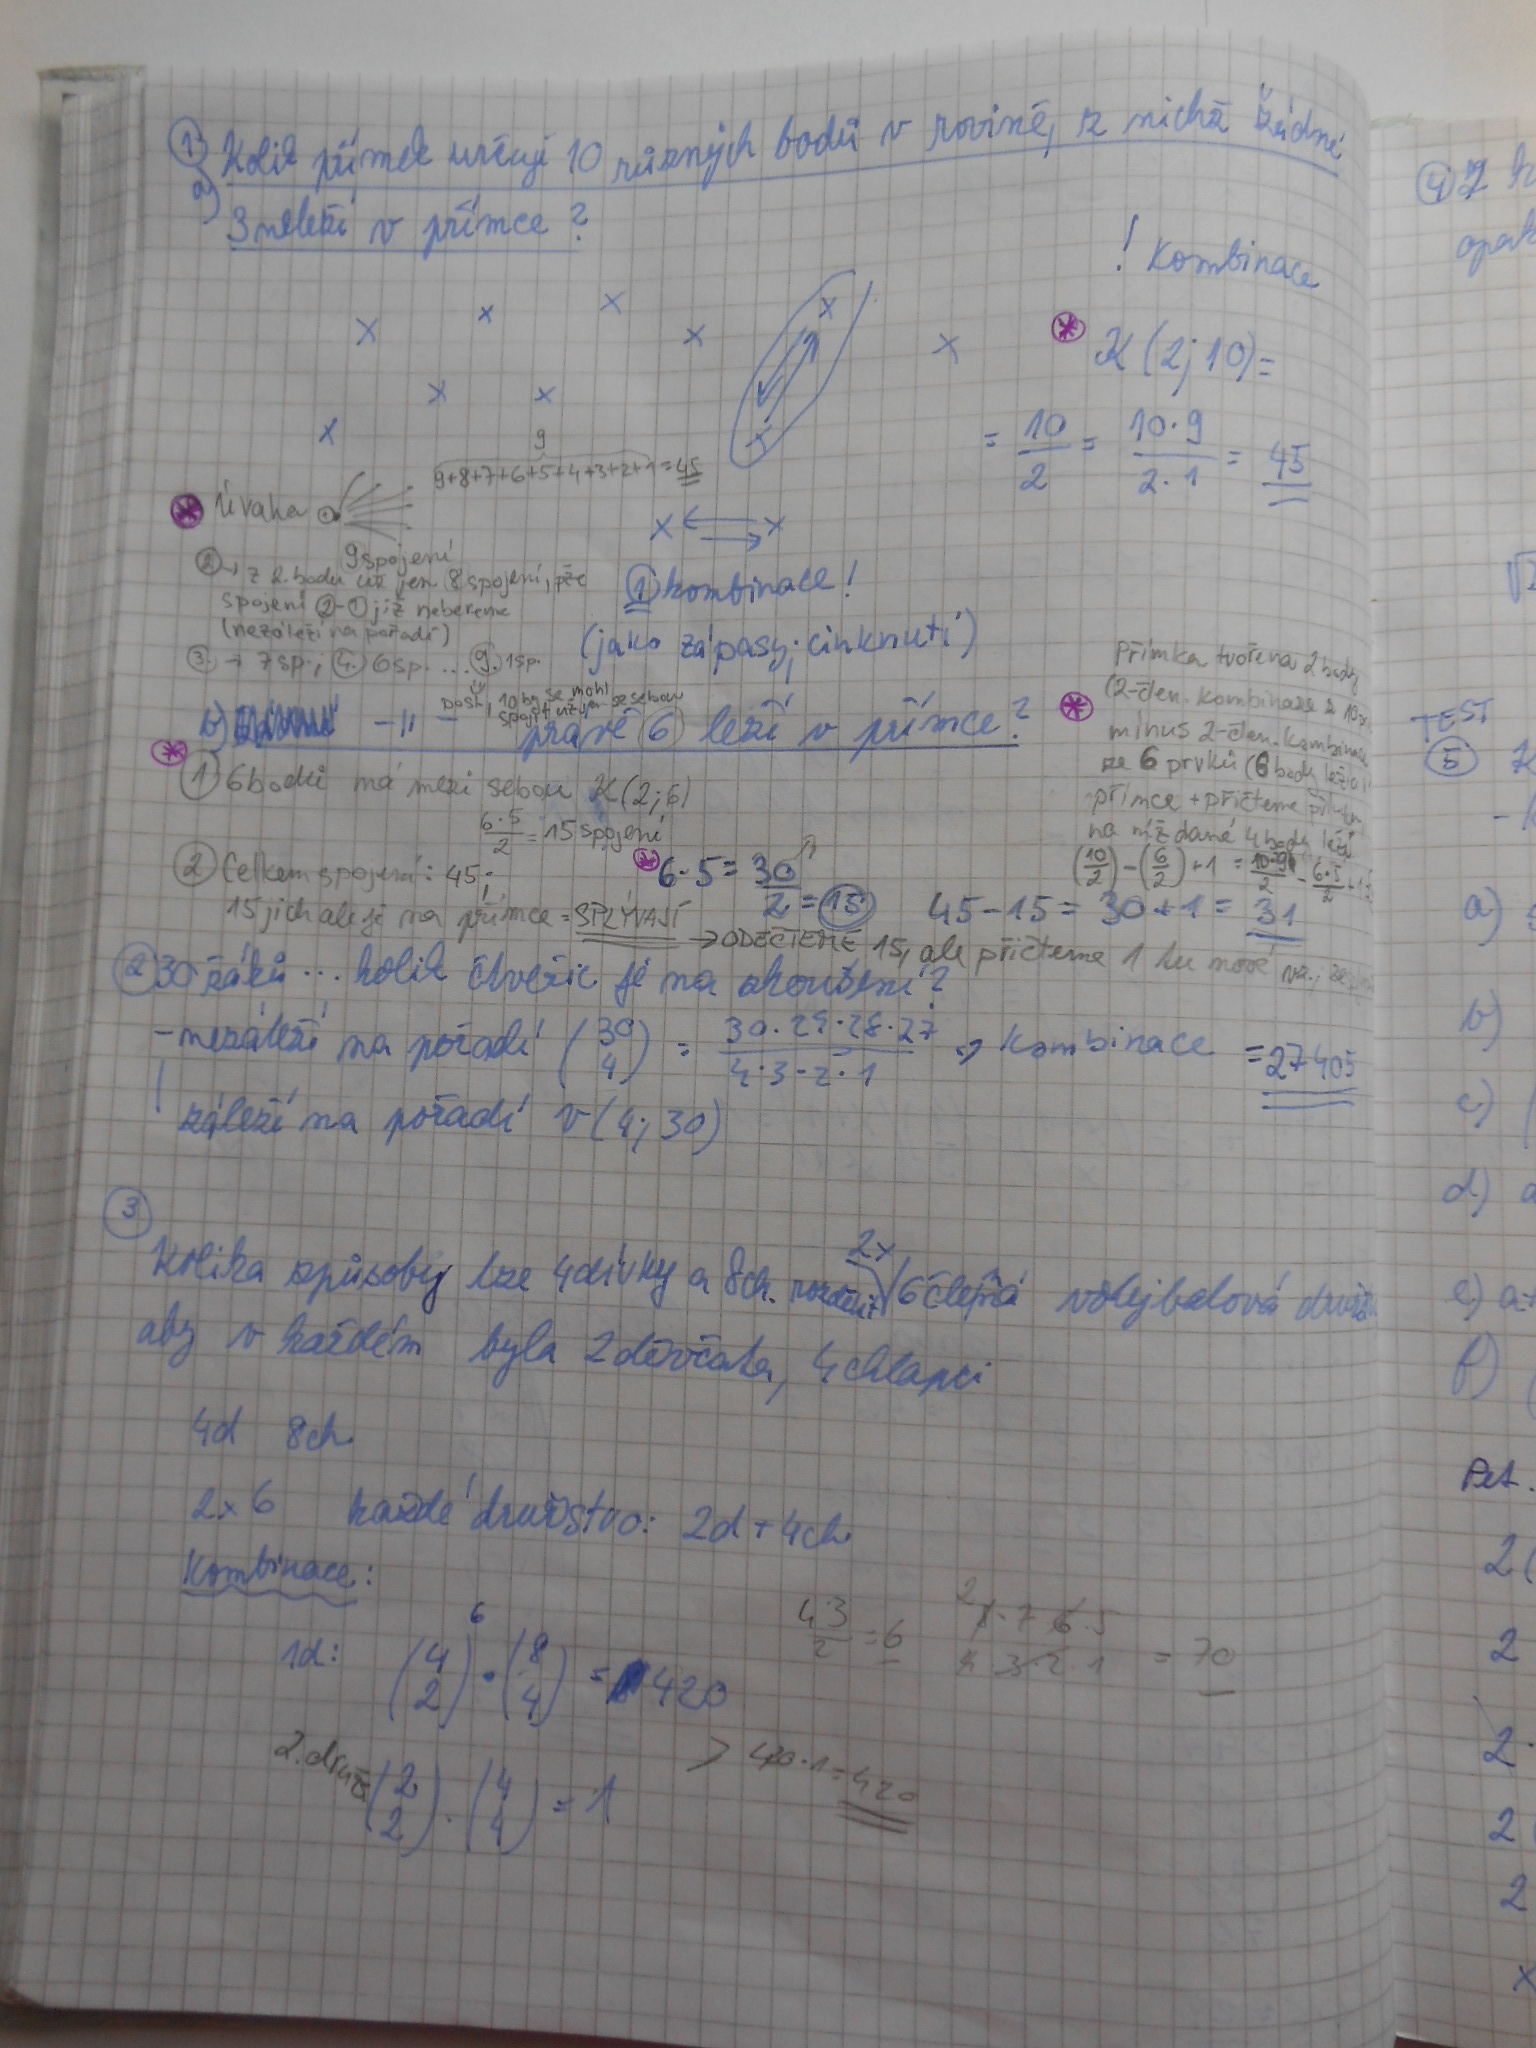 ① Kolik přímek určují 10 různých bodů v rovině, z nichž žádné
a) 3 neleží v přímce?
! Kombinace
K(2;10)=
= 10/2 = 10·9/2·1 = 45
9
9+8+7+6+5+4+3+2+1=45
Úvaha ①
9 spojení
② → z 2. bodu už jen 8 spojení, pže
spojení ②-① již nebereme
(nezáleží na pořadí)
③ → 7sp.; ④ 6sp. ... ⑨ 1sp.
x ⇄ x
① kombinace!
(jako zápasy; cinknutí)
10 by se mohl
spojit už jen se sebou
b) -"- právě 6 leží v přímce?
① 6 bodů má mezi sebou K(2;6)
6·5/2 = 15 spojení
② Celkem spojení: 45;
15 jich ale je na přímce = SPLÝVAJÍ → ODEČTEME 15, ale přičteme 1
6·5 = 30/2 = 15
45-15 = 30+1 = 31
Přímka tvořena 2 body
(2-člen. kombinace z 10
minus 2-člen. kombinace
ze 6 prvků (6 bodů leží
přímce + přičteme
na níž dané 4 body leží
(10/2) - (6/2) + 1 = 10·9/2 - 6·5/2 + 1
② 30 žáků ... kolik čtveřic je na zkoušení?
-nezáleží na pořadí (30/4) = 30·29·28·27/4·3·2·1 → Kombinace = 27405
záleží na pořadí V(4;30)
③
Kolika způsoby lze 4 dívky a 8ch. rozdělit 2x 6členná volejbalová
aby v každém byla 2 děvčata, 4 chlapci
4d 8ch
2x6 každé družstvo: 2d + 4ch
Kombinace:
4·3/2 = 6
8·7·6·5/4 3 2 1 = 70
6
1d: (4/2) · (8/4) = 420
2. druž. (2/2) · (4/4) = 1
> 420·1 = 420
④ Z
opak
√2
TEST
⑤ K
a)
b)
c)
d) a
e) a
f)
Pet.
2(
2
2
2
2
x